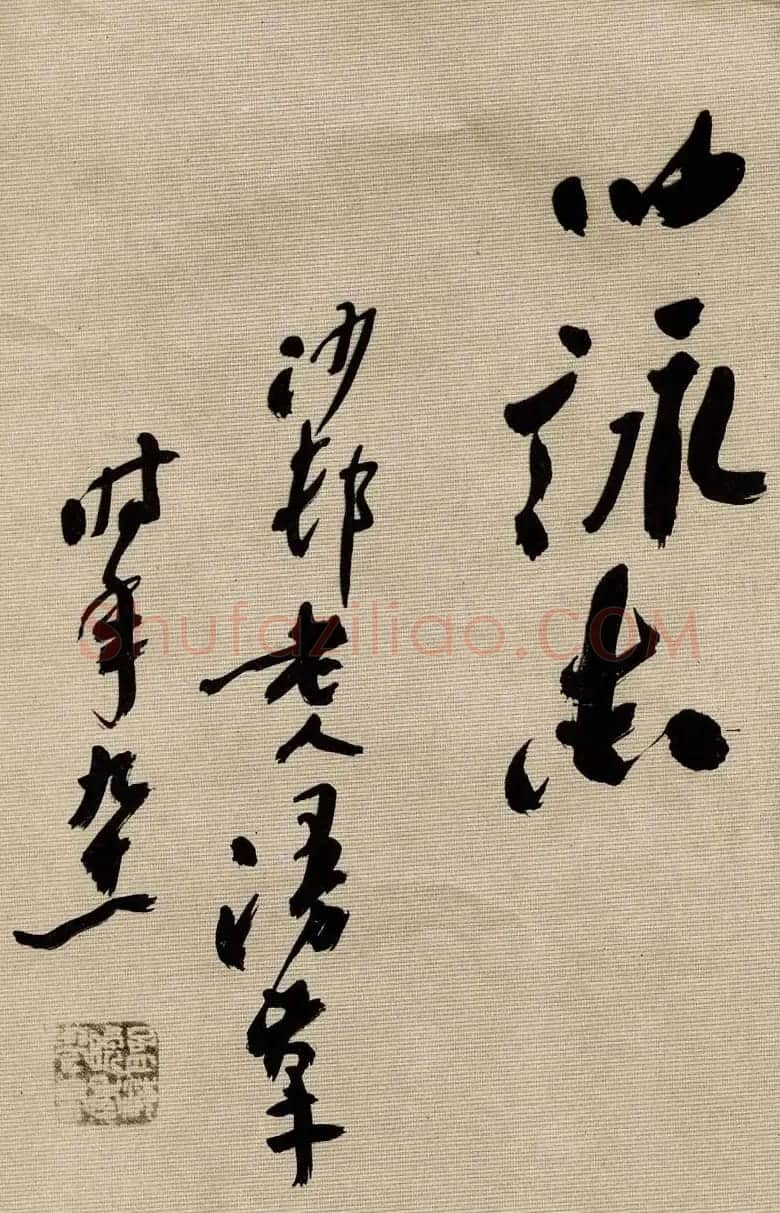 以
詠
志
沙邨老人漫草
时年九十一
Shufaziliao.COM